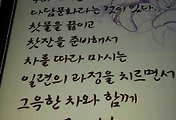 다담문화라는 것이 있다.
찻물을 끓이고
찻잔을 준비해서
차를 따라 마시는
일련의 과정을 치르면서
그윽한 차와 함께